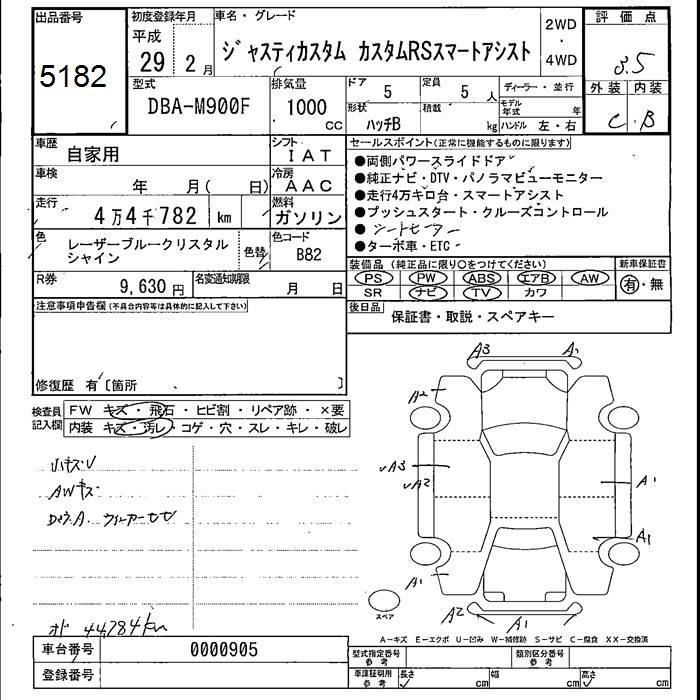 出品番号
5182
初度登録年月
平成
29 2月
車名・グレード
ジャスティカスタム カスタムRSスマートアシスト
2WD
・
4WD
評価点
3.5
外装 内装
C B
型式
DBA-M900F
排気量
1000
CC
ドア 5
定員 5 人
ディーラー・並行
モデル年式 年
形状
ハッチB
積載 kg
ハンドル 左・右
車歴
自家用
シフト
IAT
車検
年 月( 日)
冷房
AAC
走行
4万4千782 km
燃料
ガソリン
色
レーザーブルークリスタル
シャイン
色替
色コード
B82
R券
9,630 円
名変通知期限
月 日
セールスポイント(正常に機能するものに限ります)
●両側パワースライドドア
●純正ナビ・DTV・パノラマビューモニター
●走行4万キロ台・スマートアシスト
●プッシュスタート・クルーズコントロール
●シートヒーター
●ターボ車・ETC
装備品(純正品に限り〇をつけてください)
新車保証書
PS PW ABS エアB AW
SR ナビ TV カワ
有・無
後日品
保証書・取説・スペアキー
注意事項申告欄(不具合内容等は具体的に記入して下さい)
修復歴 有〔箇所 〕
検査員
記入欄
FW キズ・飛石・ヒビ割・リペア跡・×要
内装 キズ・汚レ・コゲ・穴・スレ・キレ・破レ
AWキズ
オド 44784km
A3 A1
A2
A3
A2
A1
A1
A1
A2 A1
スペア
A-キズ E-エクボ U-凹み W-補修跡 S-サビ C-腐食 XX-交換済
車台番号
0000905
登録番号
型式指定番号
参考
類別区分番号
参考
車庫証明用
参考
長さ cm
幅 cm
高さ cm